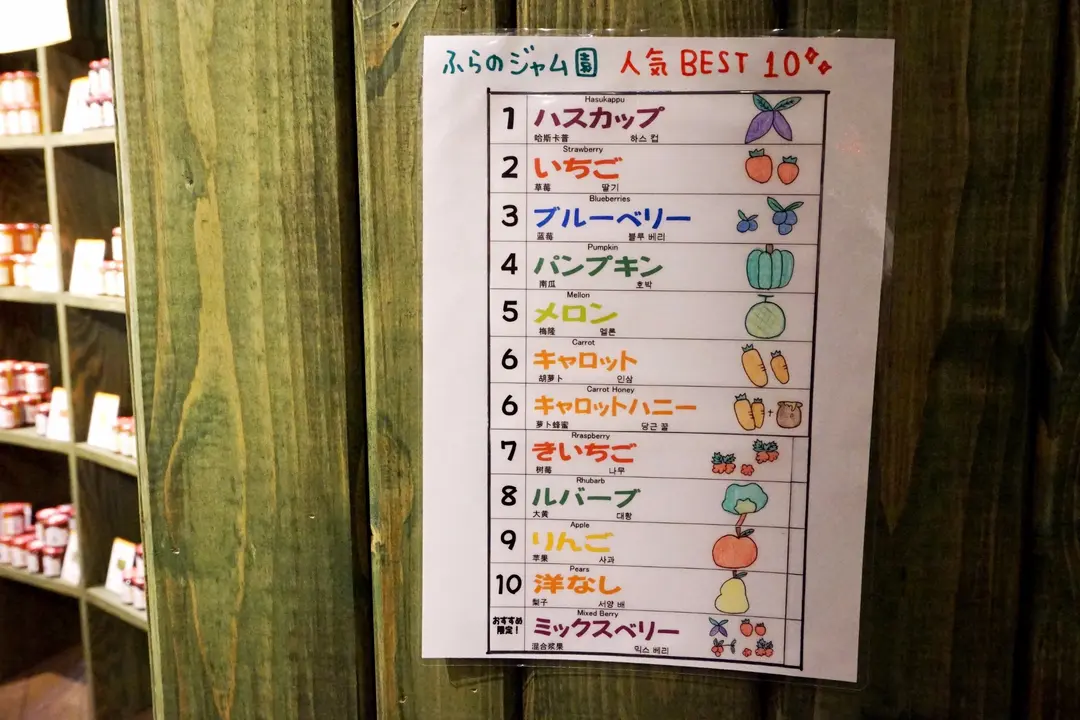 ふらのジャム園 人気 BEST 10
1 Hasukappu
ハスカップ
哈斯卡普 하스 컵
2 Strawberry
いちご
草莓 딸기
3 Blueberries
ブルーベリー
蓝莓 블루 베리
4 Pumpkin
パンプキン
南瓜 호박
5 Mellon
メロン
梅隆 멜론
6 Carrot
キャロット
胡萝卜 인삼
6 Carrot Honey
キャロットハニー
萝卜蜂蜜 당근 꿀
7 Rraspberry
きいちご
树莓 나무
8 Rhubarb
ルバーブ
大黄 대황
9 Apple
りんご
苹果 사과
10 Pears
洋なし
梨子 서양 배
おすすめ
限定！
Mixed Berry
ミックスベリー
混合浆果 믹스 베리